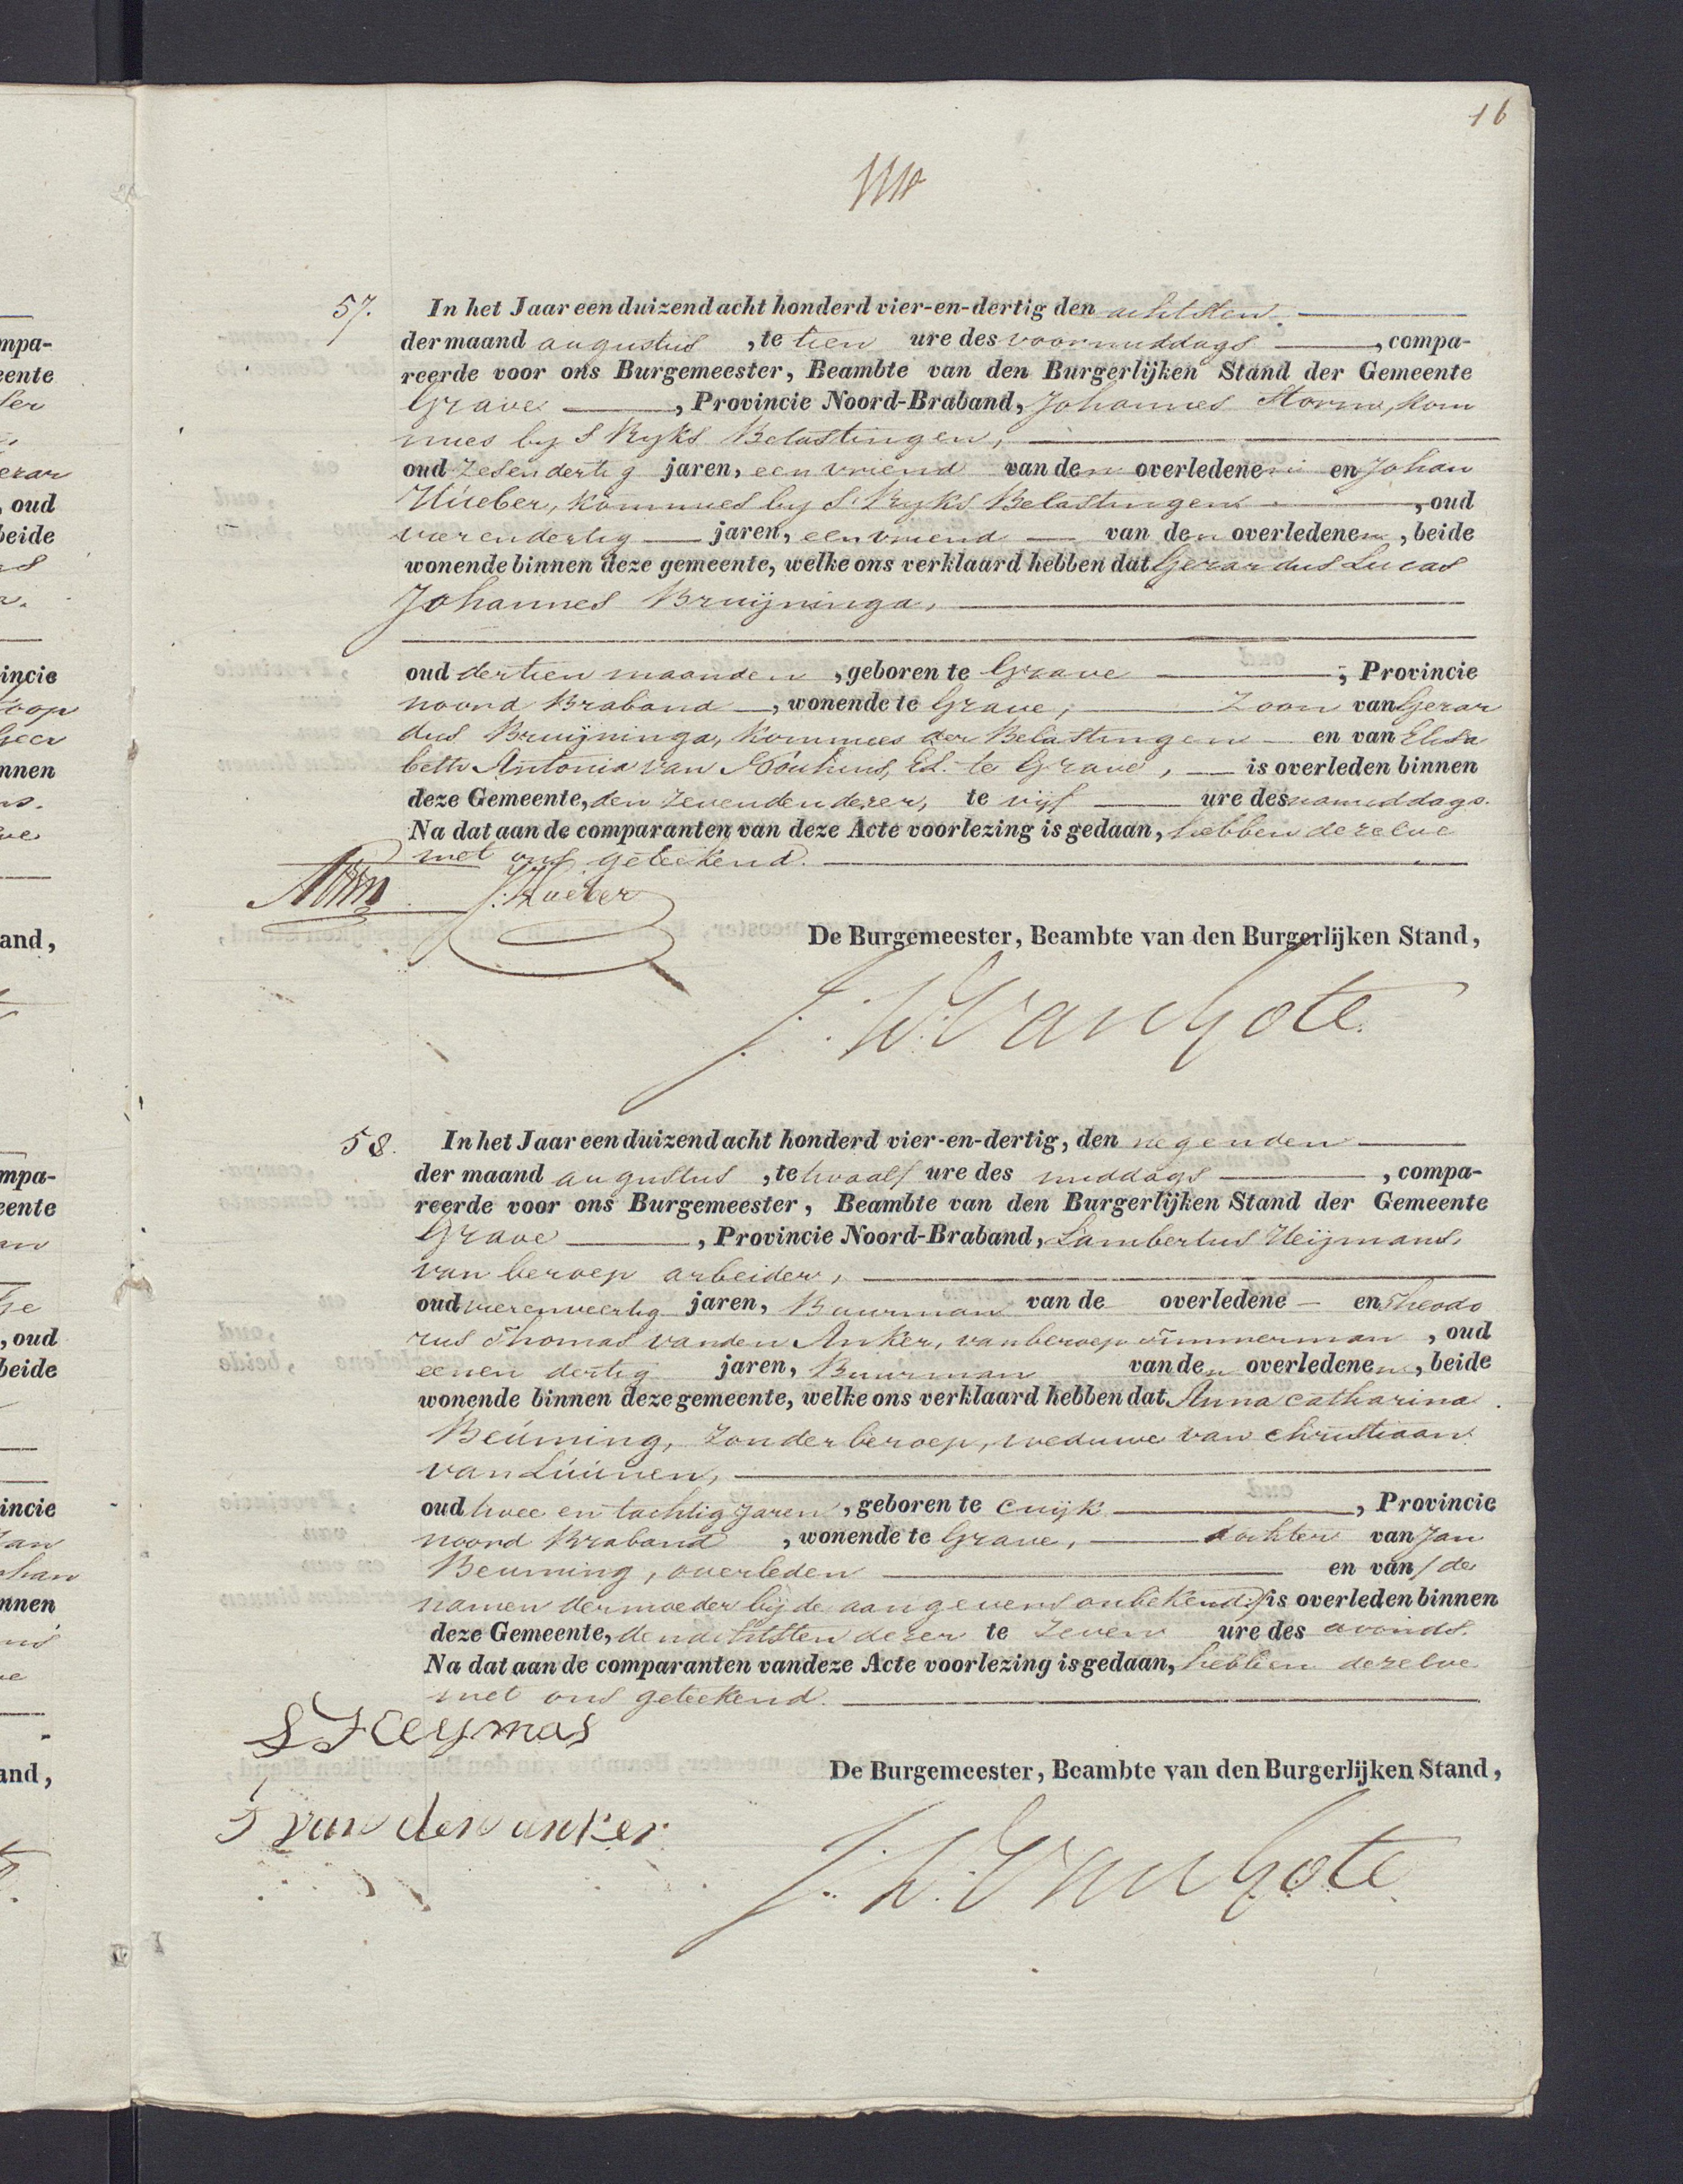 16
57. In het Jaar een duizend acht honderd vier-en-dertig den achtsten
der maand augustus , te tien ure des voormiddags , compa-
reerde voor ons Burgemeester, Beambte van den Burgerlijken Stand der Gemeente
Grave , Provincie Noord-Braband, Johannes Storm, kom
mies by S Ryks Belastingen,
oud zesendertig jaren, een vriend van den overledenen en Johan
Hueber, kommies by S Ryks Belastingen , oud
vierendertig jaren, een vriend van den overledenen , beide
wonende binnen deze gemeente, welke ons verklaard hebben dat Gerardus Lucas
Johannes Bruijninga,
oud dertien maanden , geboren te Grave , Provincie
noord Braband , wonende te Grave, Zoon van Gerar
dus Bruijninga, kommies der Belastingen en van Elisa
beth Antonia van Ed. te Grave, is overleden binnen
deze Gemeente, den zevenden dezer, te vijf ure des namiddags.
Na dat aan de comparanten van deze Acte voorlezing is gedaan, hebben dezelve
met ons geteekend.
Storm J: Hueber
De Burgemeester, Beambte van den Burgerlijken Stand,
58. In het Jaar een duizend acht honderd vier-en-dertig, den negenden
der maand augustus , te twaalf ure des middags , compa-
reerde voor ons Burgemeester, Beambte van den Burgerlijken Stand der Gemeente
Grave , Provincie Noord-Braband, Lambertus Heijmans,
van beroep arbeider,
oud vierenveertig jaren, Buurman van de overledene en Theodo
rus Thomas vanden Anker, van beroep timmerman , oud
eenen dertig jaren, Buurman van den overledenen, beide
wonende binnen deze gemeente, welke ons verklaard hebben dat Anna catharina
Beúming, zonder beroep, weduwe van Christiaan
van Lúúnen,
oud twee en tachtig Jaren , geboren te Cuijk , Provincie
noord Braband , wonende te Grave, dochter van Jan
Beuming, overleden en van /de
namen der moeder bij de aangevers onbekend/ is overleden binnen
deze Gemeente, den achtsten dezer te zeven ure des avonds.
Na dat aan de comparanten van deze Acte voorlezing is gedaan, hebben dezelve
met ons geteekend.
L Heymas
De Burgemeester, Beambte van den Burgerlijken Stand,
T van den anker